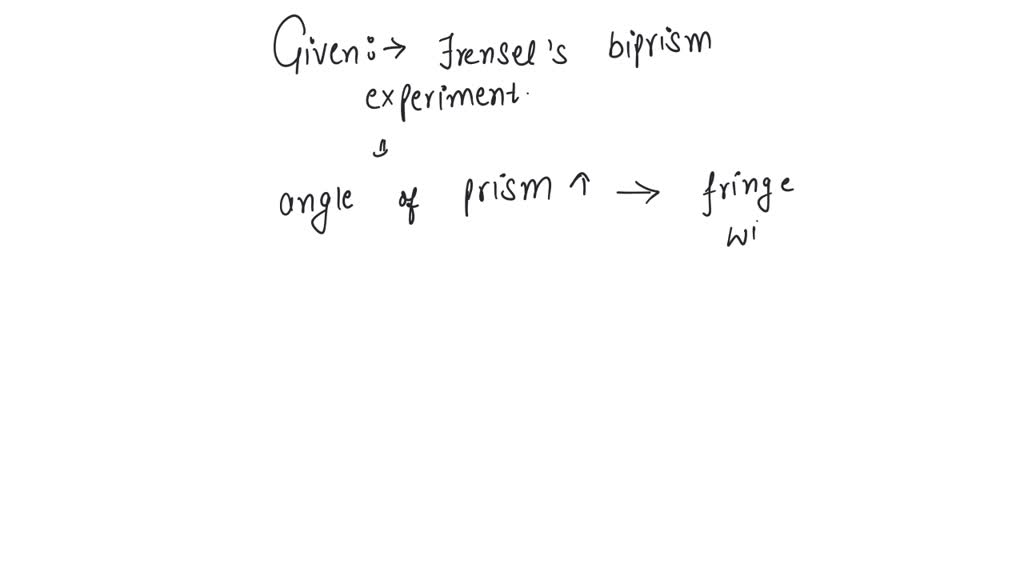 Given:→ Frensel's biprism
experiment.
↓
angle of prism ↑ → fringe
wi